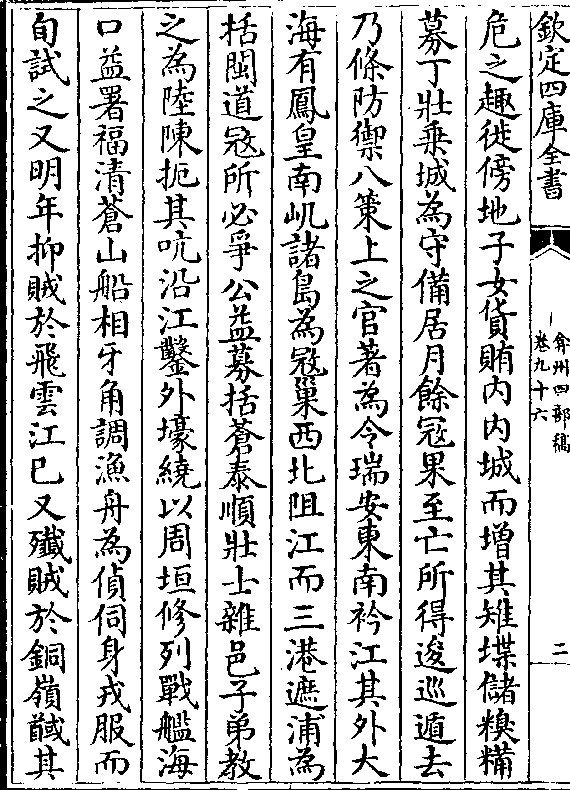 欽定四庫全書
弇州四部稿
卷九十六
二
危之趣徙傍地子女貨賄内内城而增其雉堞儲糗糒
募丁壯乗城為守備居月餘冦果至亡所得逡巡遁去
乃條防禦八策上之官著為令瑞安東南衿江其外大
海有鳳皇南屼諸島為冦巢西北阻江而三港遮浦為
括閩道冦所必爭公益募括蒼泰順壯士雜邑子弟教
之為陸陳扼其吭沿江鑿外壕繞以周垣修列戰艦海
口益署福清蒼山船相牙角調漁舟為偵伺身戎服而
旬試之又明年抑賊於飛雲江已又殲賊於銅嶺馘其